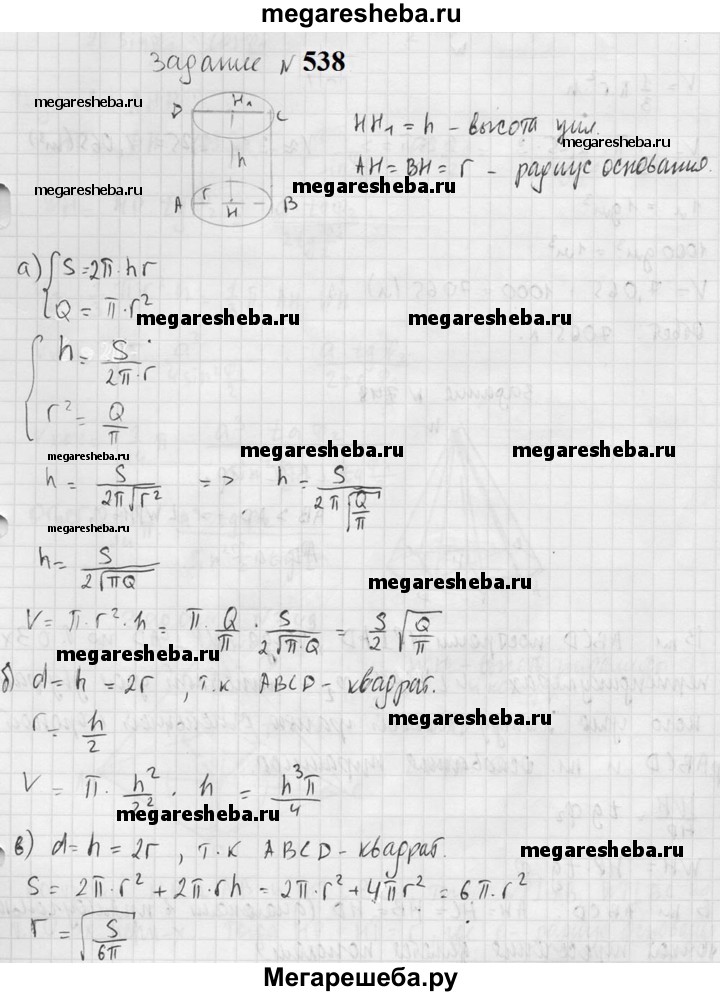 megaresheba.ru
Задание № 538
megaresheba.ru
D H₁ C
h
A r H B
HH₁ = h - высота цил.
megaresheba.ru
AH = BH = r - радиус основания.
megaresheba.ru
megaresheba.ru
а) { S = 2π·hr
Q = π·r²
megaresheba.ru
megaresheba.ru
{ h = S/(2π·r)
r² = Q/π
megaresheba.ru
megaresheba.ru
megaresheba.ru
h = S/(2π√r²) => h = S/(2π√(Q/π))
megaresheba.ru
h = S/(2√(πQ))
megaresheba.ru
V = π·r²·h = π·Q/π · S/(2√(π·Q)) = S/2 √(Q/π)
megaresheba.ru
б) d = h = 2r, т.к ABCD - квадрат.
megaresheba.ru
r = h/2
V = π·h²/2² · h = h³π/4
megaresheba.ru
megaresheba.ru
в) d = h = 2r, т.к ABCD - квадрат.
S = 2π·r² + 2π·rh = 2π·r² + 4πr² = 6π·r²
r = √(S/6π)
megaresheba.ru
Мегарешеба.ру